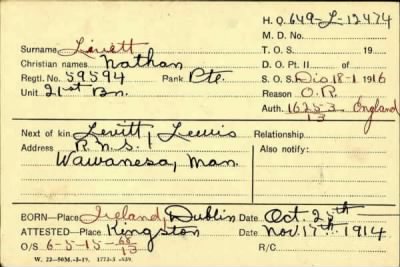 H. Q. 649-L-12474
Surname Levitt M. D. No.
Christian names Nathan T. O. S. 19
Regtl. No. 59594 Rank Pte. D. O. Pt. II of
Unit 21st Bn. S. O. S. Dis 18-1 1916
Reason O.R.
Auth. 16253 England
13
Next of kin Levitt, Lewis Relationship
Address R.M.S. Also notify:
Wawanesa, Man.
BORN—Place Ireland, Dublin Date Oct. 25th
ATTESTED—Place Kingston Date Nov. 17th 1914
O/S 6-5-15 68/13 R/C
W. 22—50M.-2-19. 1772-3-839.